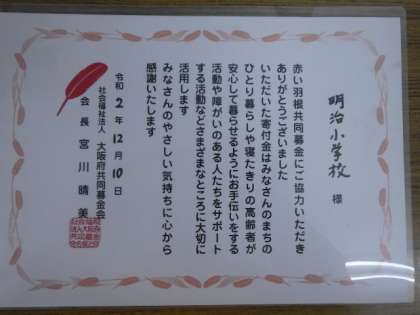 明治小学校 様
赤い羽根共同募金にご協力いただき
ありがとうございました
いただいた寄付金はみなさんのまちの
ひとり暮らしや寝たきりの高齢者が
安心して暮らせるようにお手伝いをする
活動や障がいのある人たちをサポート
する活動などさまざまなところに大切に
活用します
みなさんのやさしい気持ちに心から
感謝いたします
令和2年12月10日
社会福祉法人 大阪府共同募金会
会長 宮川晴美